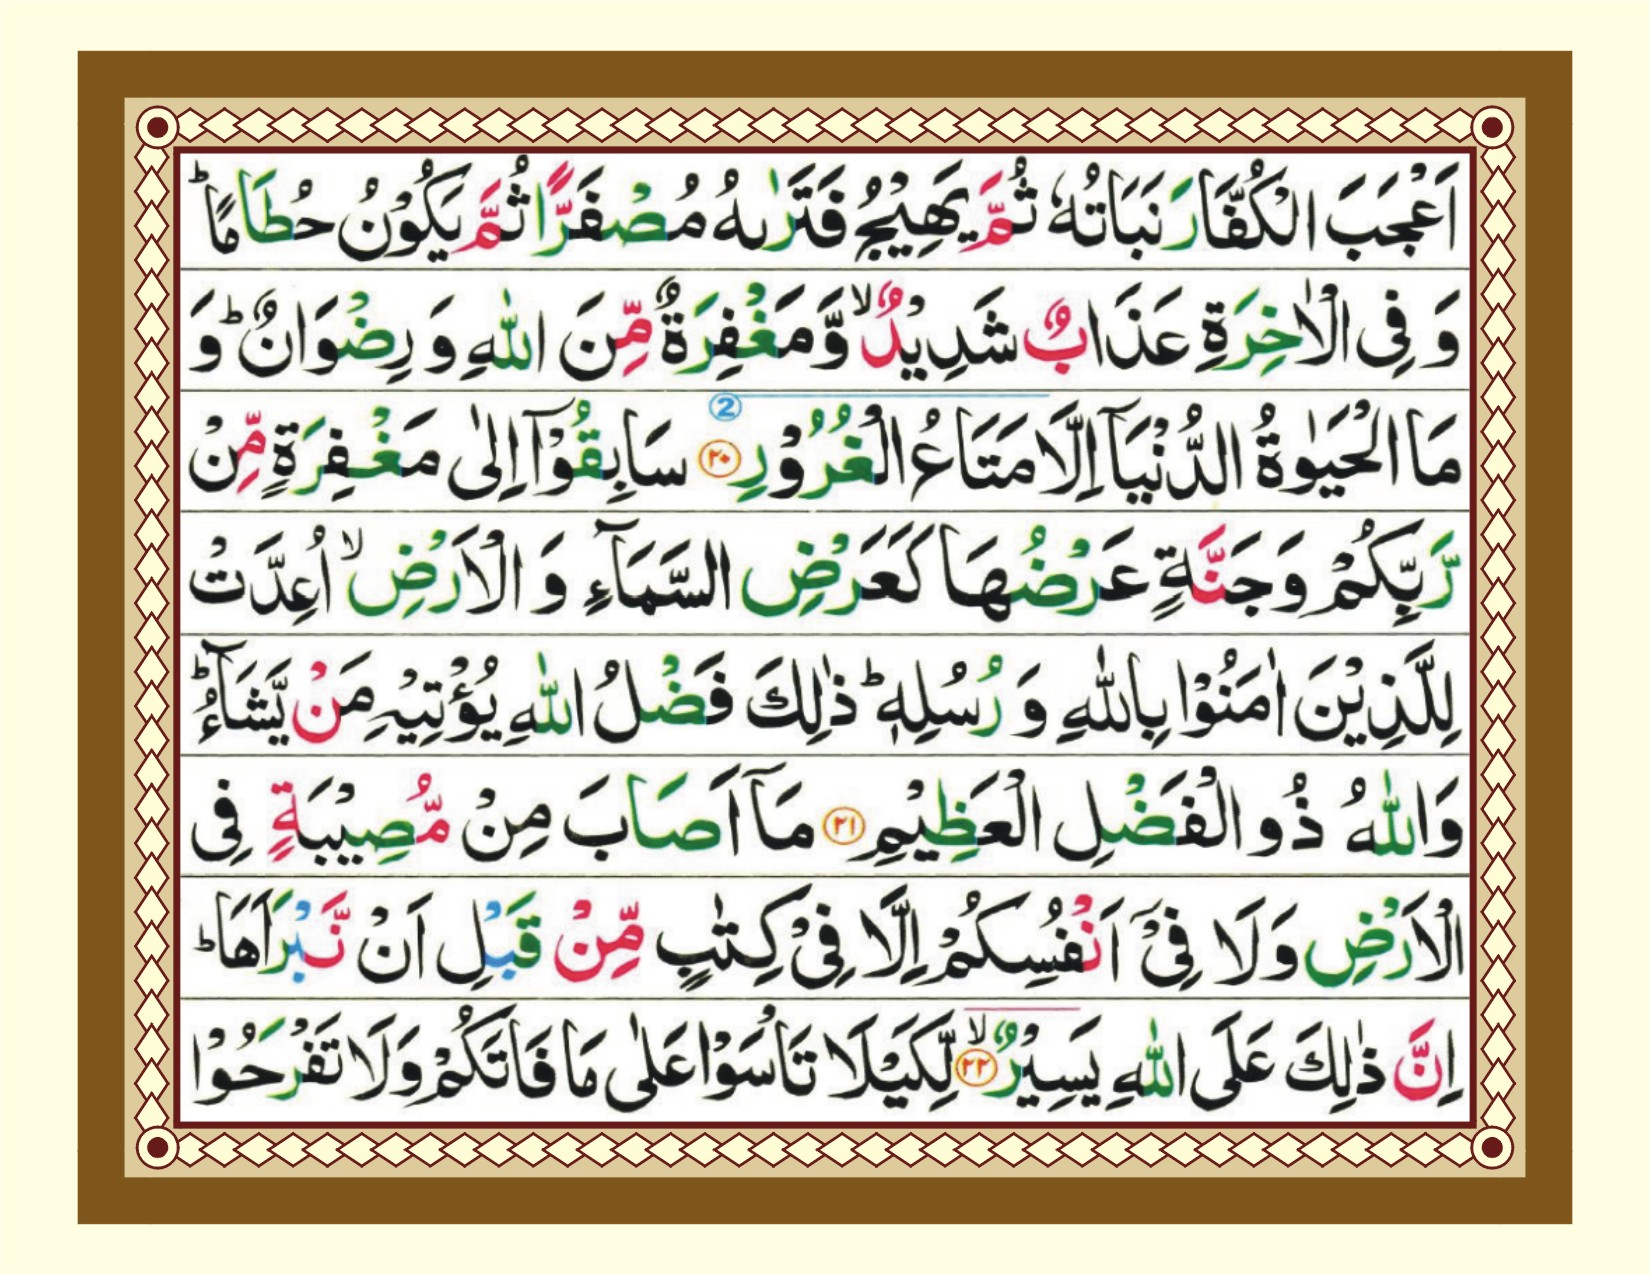 اَعْجَبَ الْكُفَّارَ نَبَاتُهٗ ثُمَّ يَهِيْجُ فَتَرٰىهُ مُصْفَرًّا ثُمَّ يَكُوْنُ حُطَامًا ؕ
وَ فِى الْاٰخِرَةِ عَذَابٌ شَدِيْدٌ ۙ وَّمَغْفِرَةٌ مِّنَ اللّٰهِ وَ رِضْوَانٌ ؕ وَ
مَا الْحَيٰوةُ الدُّنْيَآ اِلَّا مَتَاعُ الْغُرُوْرِ ②0 سَابِقُوْٓا اِلٰى مَغْفِرَةٍ مِّنْ
رَّبِّكُمْ وَجَنَّةٍ عَرْضُهَا كَعَرْضِ السَّمَآءِ وَ الْاَرْضِ ۙ اُعِدَّتْ
لِلَّذِيْنَ اٰمَنُوْا بِاللّٰهِ وَ رُسُلِهٖ ؕ ذٰلِكَ فَضْلُ اللّٰهِ يُؤْتِيْهِ مَنْ يَّشَآءُ ؕ
وَاللّٰهُ ذُو الْفَضْلِ الْعَظِيْمِ ۲۱ مَآ اَصَابَ مِنْ مُّصِيْبَةٍ فِى
الْاَرْضِ وَلَا فِىْٓ اَنْفُسِكُمْ اِلَّا فِىْ كِتٰبٍ مِّنْ قَبْلِ اَنْ نَّبْرَاَهَا ؕ
اِنَّ ذٰلِكَ عَلَى اللّٰهِ يَسِيْرٌ ۙ ۲۲ لِّكَيْلَا تَاْسَوْا عَلٰى مَا فَاتَكُمْ وَلَا تَفْرَحُوْا